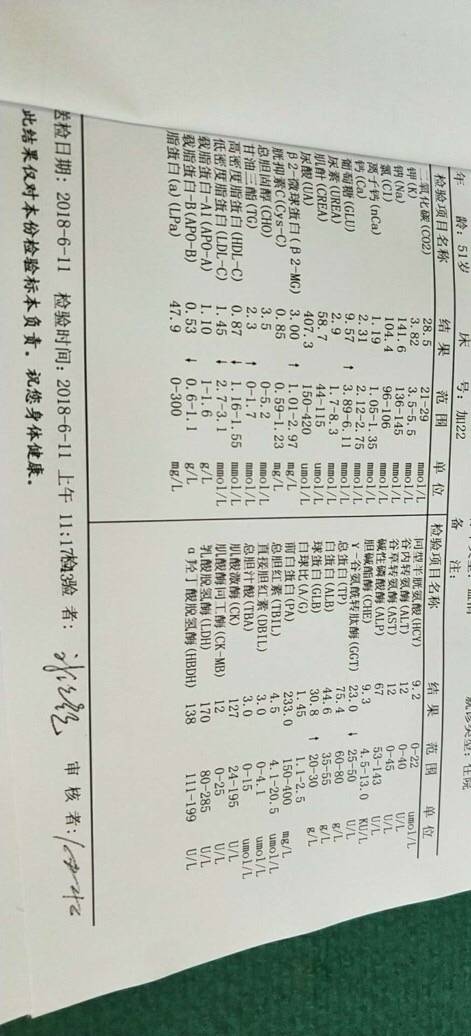 年 龄: 51岁 床 号: 加22 备 注: 就诊类型: 住院
检验项目名称 结 果 范 围 单 位 检验项目名称 结 果 范 围 单 位
二氧化碳(CO2) 28.5 21-29 mmol/L 同型半胱氨酸(HCY) 9.2 0-22 umol/L
钾(K) 3.82 3.5-5.5 mmol/L 谷丙转氨酶(ALT) 12 0-40 U/L
钠(Na) 141.6 136-145 mmol/L 谷草转氨酶(AST) 12 0-45 U/L
氯(Cl) 104.4 96-106 mmol/L 碱性磷酸酶(ALP) 67 53-143 U/L
离子钙(nCa) 1.19 1.05-1.35 mmol/L 胆碱酯酶(CHE) 9.3 4.5-13.0 KU/L
钙(Ca) 2.31 2.12-2.75 mmol/L γ-谷氨酰转肽酶(GGT) 23.0 ↓ 25-50 U/L
葡萄糖(GLU) 9.57 ↑ 3.89-6.11 mmol/L 总蛋白(TP) 75.4 60-80 g/L
尿素(UREA) 2.9 1.7-8.3 mmol/L 白蛋白(ALB) 44.6 35-55 g/L
肌酐(CREA) 58.7 44-115 umol/L 球蛋白(GLB) 30.8 ↑ 20-30 g/L
尿酸(UA) 407.3 150-420 umol/L 白球比(A/G) 1.45 1.1-2.5
β2-微球蛋白(β2-MG) 3.00 ↑ 1.01-2.97 mg/L 前白蛋白(PA) 233.0 150-400 mg/L
胱抑素C(Cys-C) 0.85 0.59-1.23 mg/L 总胆红素(TBIL) 4.5 4.1-20.5 umol/L
总胆固醇(CHO) 3.5 0-5.2 mmol/L 直接胆红素(DBIL) 3.0 0-4.1 umol/L
甘油三酯(TG) 2.3 ↑ 0-1.7 mmol/L 总胆汁酸(TBA) 3.0 0-15 umol/L
高密度脂蛋白(HDL-C) 0.87 ↓ 1.16-1.55 mmol/L 肌酸激酶(CK) 127 24-195 U/L
低密度脂蛋白(LDL-C) 1.45 ↓ 2.7-3.1 mmol/L 肌酸酶同工酶(CK-MB) 12 0-25 U/L
载脂蛋白-A1(APO-A) 1.10 1-1.6 g/L 乳酸脱氢酶(LDH) 170 80-285 U/L
载脂蛋白-B(APO-B) 0.53 ↓ 0.6-1.1 g/L α羟丁酸脱氢酶(HBDH) 138 111-199 U/L
脂蛋白(a)(LPa) 47.9 0-300 mg/L
送检日期: 2018-6-11 检验时间: 2018-6-11 上午 11:17 检验者: 审核者:
此结果仅对本份检验标本负责。祝您身体健康。